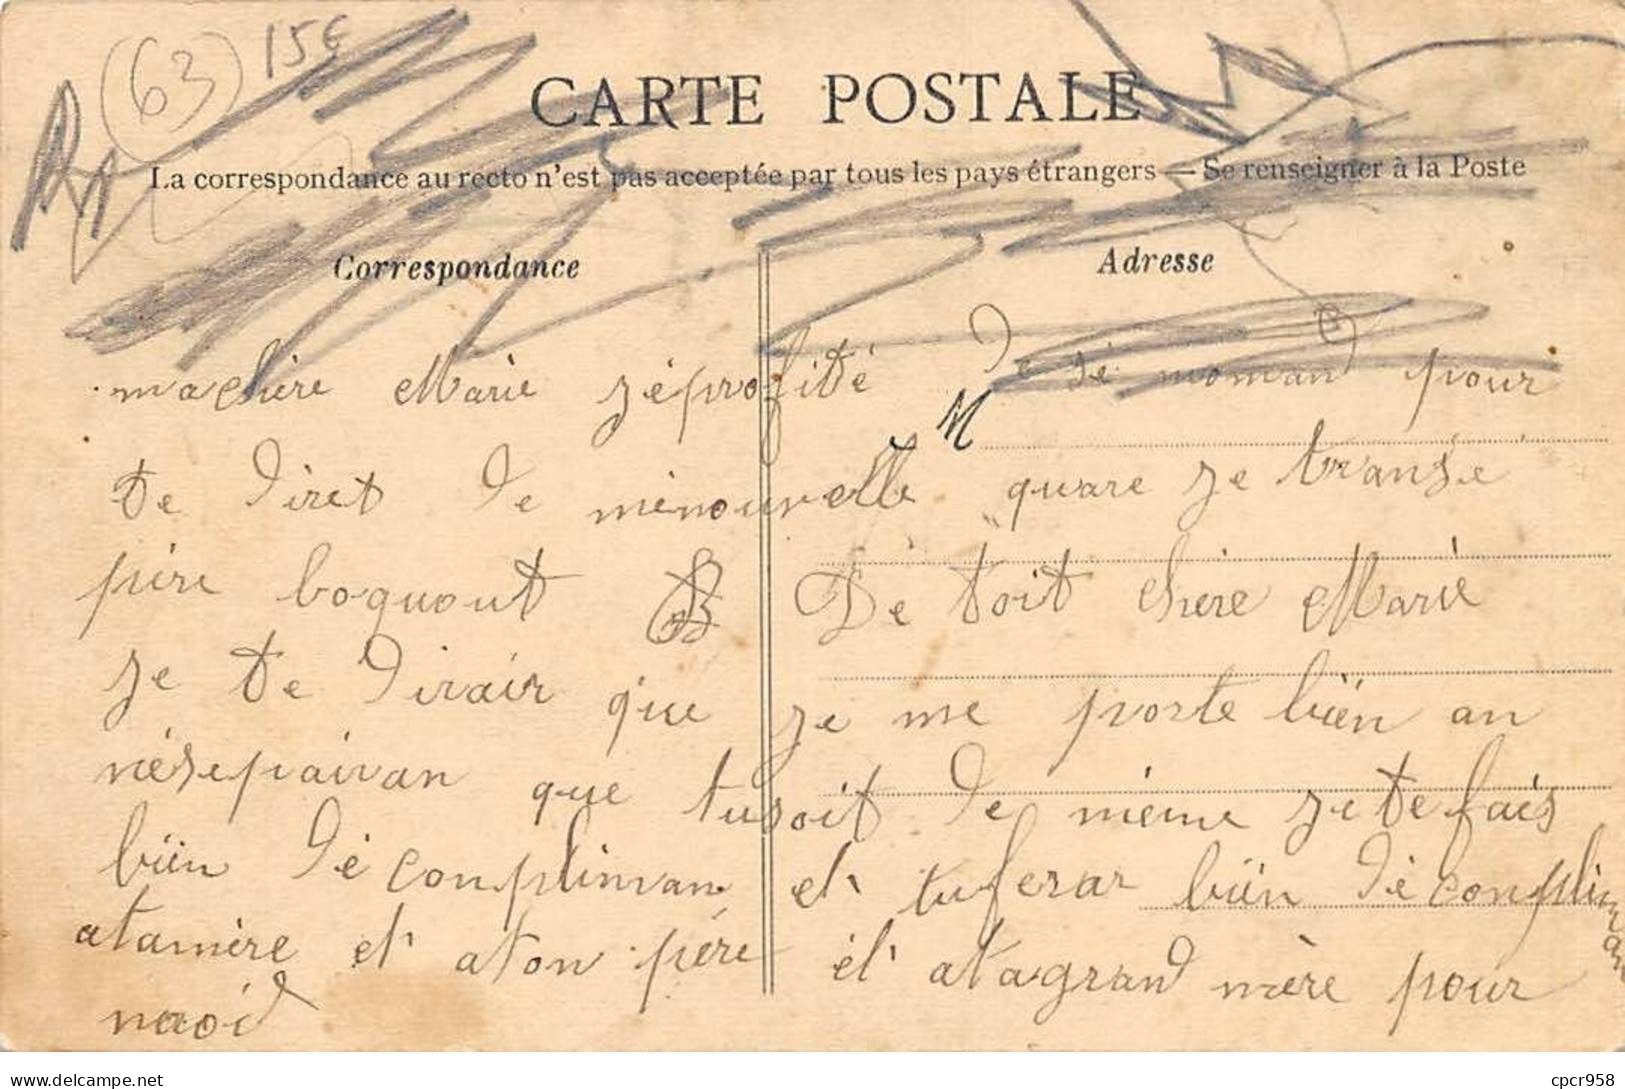 (63) 15€
CARTE POSTALE
La correspondance au recto n'est pas acceptée par tous les pays étrangers — Se renseigner à la Poste
Correspondance
Adresse
M
ma chère Marie jé profité de sé moman pour
te diret de mé nouvelle quare je transe
père boquout De toit chère Marie
je te dirair que je me porte bien an
néspairan que tu soit de mème je te fais
bien dé conplinman et tu ferar bien dé conpliman
a ta mère et a ton père et a ta grand mère pour
cpcr958